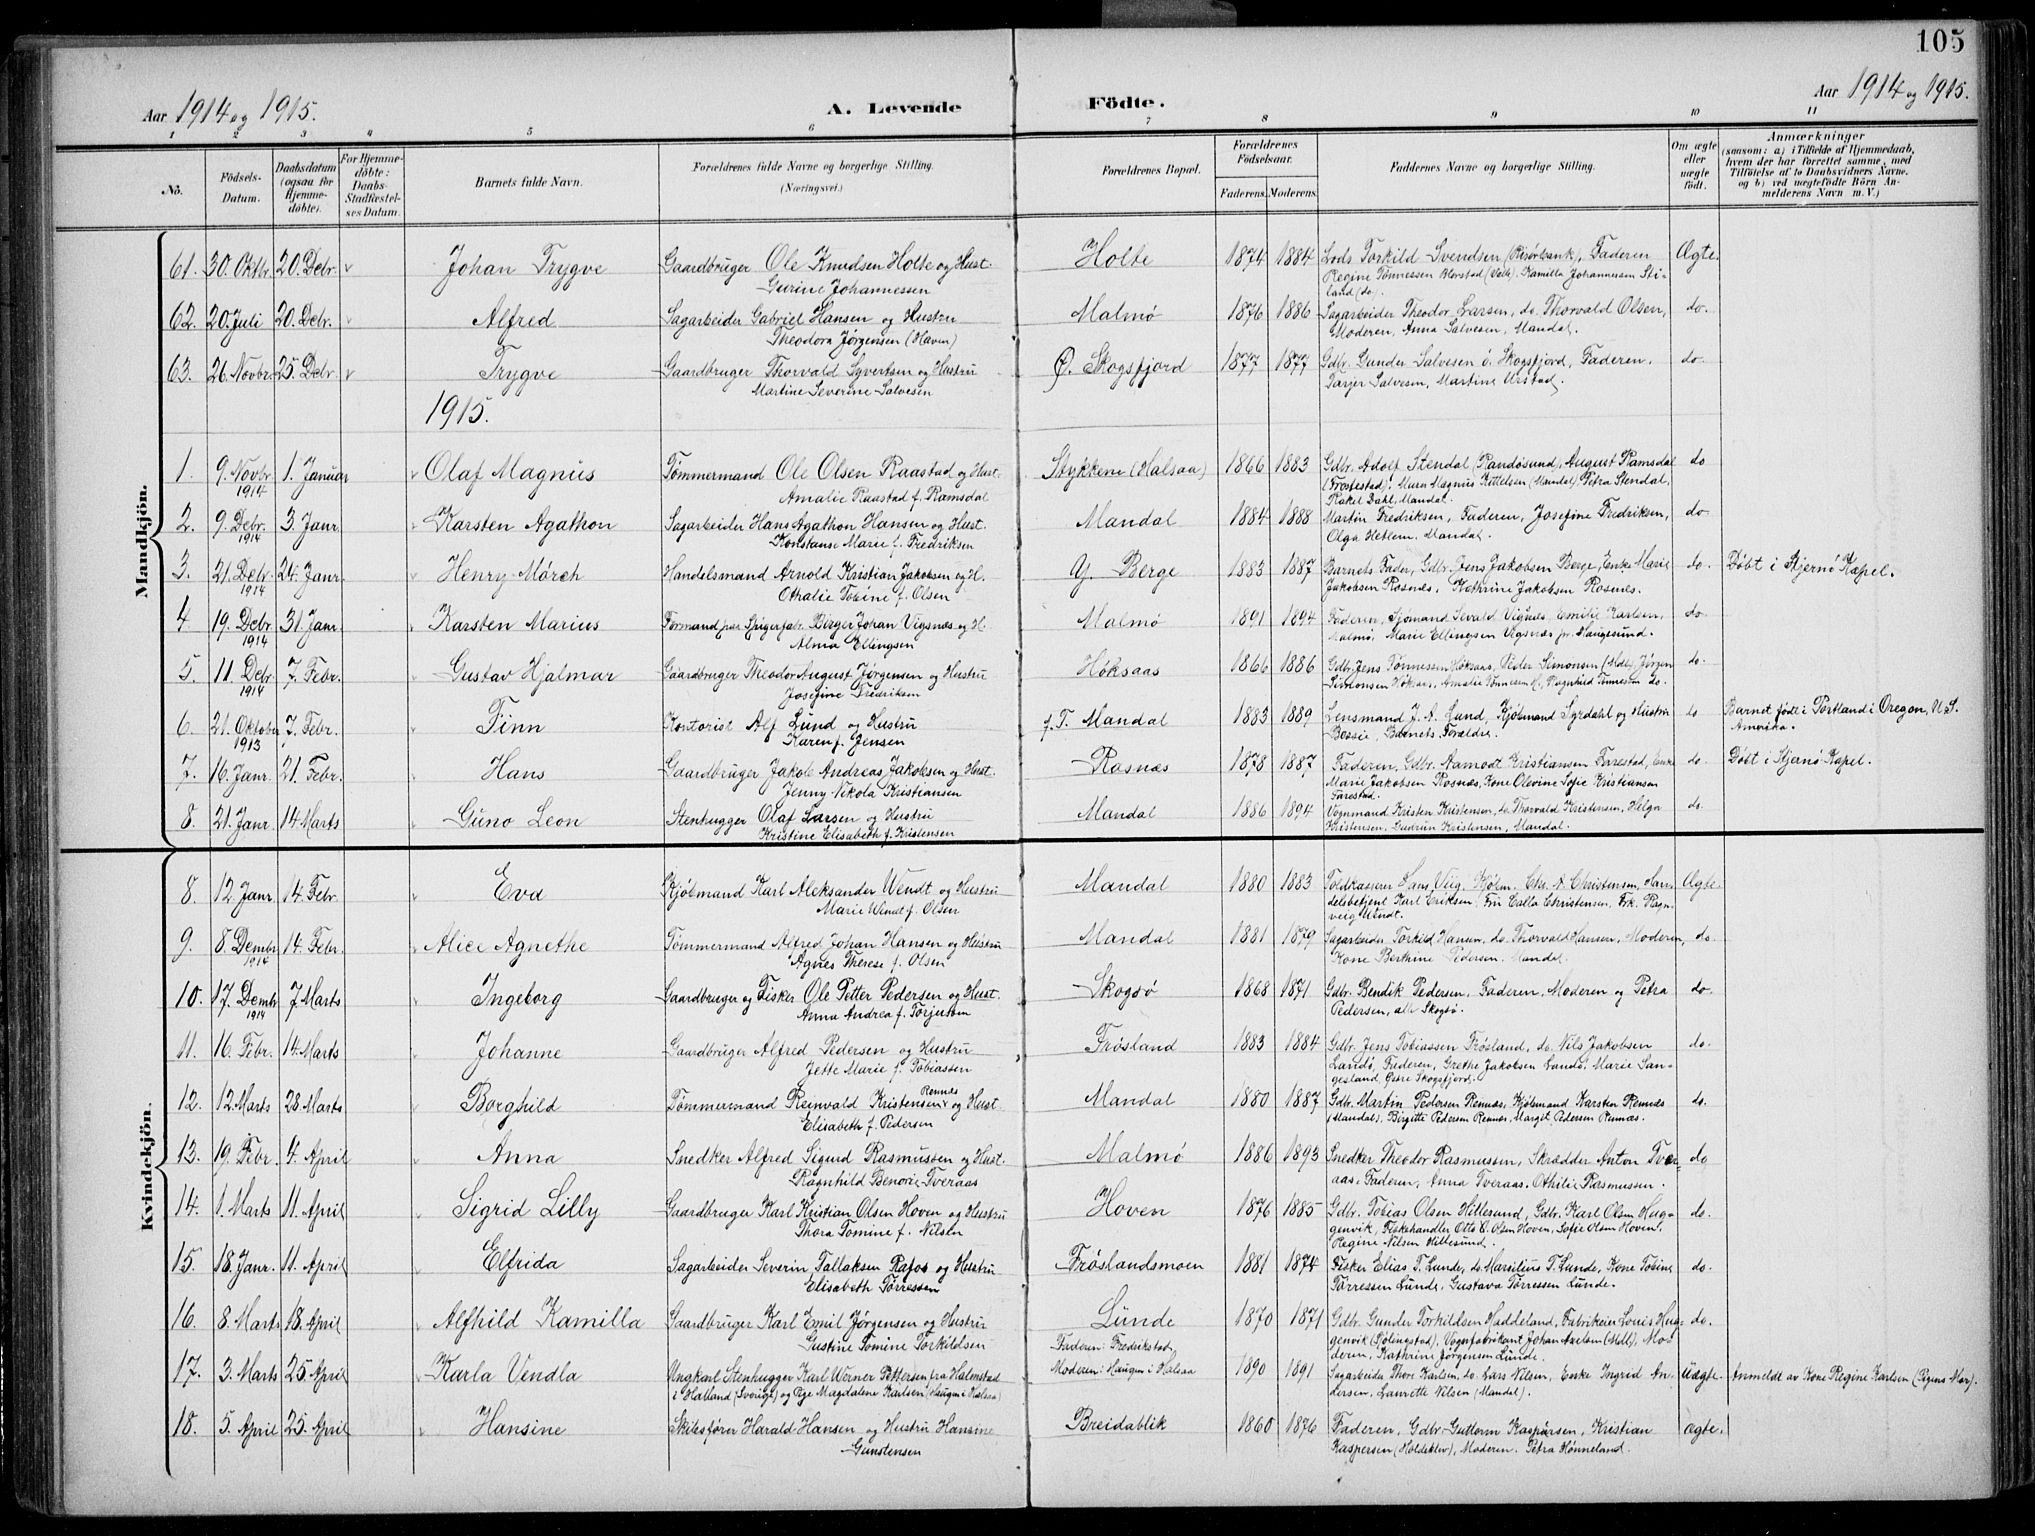 105
Aar 1914 og 1915. A. Levende Födte. Aar 1914 og 1915.
1 2 3 4 5 6 7 8 9 10 11
No. Födsels-Datum. Daabsdatum (ogsaa for Hjemme-döbte). For Hjemme-döbte: Daabs-Stadfæstel-ses Datum. Barnets fulde Navn. Forældrenes fulde Navne og borgerlige Stilling. (Næringsvei.) Forældrenes Bopæl. Forældrenes Födselsaar. Faderens. Moderens. Faddernes Navne og borgerlige Stilling. Om ægte eller uægte födt. Anmærkninger (saasom: a) i Tilfælde af Hjemmedaab, hvem der har forrettet samme, med Tilföielse af to Daabsvidners Navne, og b) ved uægtefödte Börn An-melderens Navn m.V.)
Mandkjön.
61. 30. Oktbr. 20. Debr. Johan Trygve Gaardbruger Ole Knudsen Holte og Hust. Holte 1874 1884 Lods Torkild Svendsen (Risørbank), Faderen Ægte
Gurine Johannessen Regine Tønnessen (Valle) Kamilla Johannesen Sti-
land (do).
62. 20. Juli 20. Debr. Alfred Sagarbeider Gabriel Hansen og Hustru Malmö 1876 1886 Sagarbeider Theodor Larsen, do. Thorvald Olsen, do.
Theodora Jørgensen (Haven) Moderen, Anna Salvesen, Mandal.
63. 26. Novbr. 25. Debr. Trygve Gaardbruger Thorvald Syvertsen og Hustru Ø. Skogsfjord 1877 1877 Gdbr. Gunder Salvesen ö. Skogsfjord, Faderen, do.
Martine Severine Salvesen Tarjer Salvesen, Martine Urstad.
1915.
1. 9. Novbr. 1914 1. Januar Olaf Magnus Tømmermand Ole Olsen Raastad og Hust. Stykkene (Halsaa) 1866 1883 Gdbr. Adolf Stendal (Randøsund), August Ramsdal do
Amalie Raastad f. Ramsdal (Frøstestad), Murer Magnus Kittelsen (Mandal) Petra Stendal,
Rakel Dahl, Mandal.
2. 9. Debr. 1914 3. Janr. Karsten Agathon Sagarbeider Hans Agathon Hansen og Hust. Mandal 1884 1888 Martin Fredriksen, Faderen, Josefine Fredriksen, do
Konstanse Marie f. Fredriksen Olga Hetlem, Mandal.
3. 21. Debr. 1914 24. Janr. Henry Mørch Handelsmand Arnold Kristian Jakobsen og H. Y. Berge 1883 1887 Barnets Fader, Gdbr. Jens Jakobsen Berge, Enke Marie do. Døbt i Stjernø Kapel.
Othalie Tobine f. Olsen Jakobsen Rosnes, Kathrine Jakobsen Rosnes.
4 19. Debr. 1914 31. Janr. Karsten Marius Formand paa Spigerfab. Birger Johan Vigsnæs og H. Malmö 1891 1894 Faderen, Sjømand Sevald Vigsnes, Emilie Karlsen, do.
Alma Ellingsen Malmø, Marie Ellingsen Vigsnæs pr. Haugesund.
5. 11. Debr. 1914 7. Febr. Gustav Hjalmar Gaardbruger Theodor August Jørgensen og Hustru Høksaas 1866 1886 Gdbr. Jens Tønnessen Høksaas, Peder Simonsen (Mdl.) Jørgen do.
Josefine Fredriksen Simonsen Høksaas, Amalie Tønnesen, Ragnhild Tønnesen do.
6. 21. Oktober 1913 7. Febr. Finn Kontorist Alf Lund og Hustru f. T. Mandal 1883 1889 Lensmand J. A. Lund, Kjøbmand Syrdahl og Hustru do Barnet født i Portland i Oregon, U.S.
Karen f. Jensen Bessie, Barnets Forældre. Amerika.
7. 16. Janr. 21. Febr. Hans Gaardbruger Jakob Andreas Jakobsen og Hust. Rosnæs 1878 1887 Faderen, Gdbr. Aamodt Kristiansen Farestad, Enke do. Døbt i Stjernø Kapel.
Jenny Nikola Kristiansen Marie Jakobsen Rosnæs, Kone Olevine Sofie Kristiansen
Farestad.
8. 21. Janr. 14 Marts Guno Leon Stenhugger Olaf Larsen og Hustru Mandal 1886 1894 Vognmand Kristen Kristensen, do. Thorvald Kristensen, Helga do.
Kristine Elisabeth f. Kristensen Kristensen, Gudrun Kristensen, Mandal.
Kvindekjön.
8. 12. Janr. 14. Febr. Eva Kjøbmand Karl Aleksander Wendt og Hustru Mandal 1880 1883 Toldkasserer Hans Vug, Kjøbm. Chr. A. Christensen, Han- Ægte
Marie Wendt f. Olsen delsbetjent Karl Eriksen, Fru Calla Christensen, Frk. Ragn-
veig Wendt.
9. 8. Dembr. 1914 14. Febr. Alice Agnethe Tømmermand Alfred Johan Hansen og Hustru Mandal 1881 1879 Sagarbeider Torkild Hansen, do. Thorvald Hansen, Moderen, do.
Agnes Therese f. Olsen Kone Berthine Pedersen. Mandal.
10. 17. Dembr. 1914 7. Marts Ingeborg Gaardbruger og Fisker Ole Petter Pedersen og Hust. Skogsø 1868 1871 Gdbr. Bendik Pedersen, Faderen, Moderen og Petra do.
Anna Andrea f. Torjussen Pedersen, alle Skogsø.
11. 16. Febr. 14. Marts Johanne Gaardbruger Alfred Pedersen og Hustru Frøsland 1883 1884 Gdbr. Jens Tobiassen Frøsland, do. Nils Jakobsen do.
Jette Marie f. Tobiassen Landø, Faderen, Grethe Jakobsen Landø, Marie San-
gesland, Østre Skogsfjord.
12. 12. Marts 28. Marts Borghild Tømmermand Reinvald Kristensen Rennes og Hust. Mandal 1880 1887 Gdbr. Martin Pedersen Rennæs, Kjøbmand Karsten Rennæs do.
Elisabeth f. Pedersen (Mandal), Birgitte Pedersen Rennæs, Margit Pedersen Rennæs.
13. 19. Febr. 4. April Anna Snedker Alfred Sigurd Rasmussen og Hust. Malmø 1886 1893 Snedker Theodor Rasmussen, Skrædder Anton Tver- do
Ragnhild Benovie Tveraas aas, Faderen, Anna Tveraas, Othilie Rasmussen.
14. 1. Marts 11. April Sigrid Lilly Gaardbruger Karl Kristian Olsen Hoven og Hustru Hoven 1876 1885 Gdbr. Tobias Olsen Hillesund, Gdbr. Karl Olsen Hag- do.
Thora Tomine f. Nilsen genvik, Fiskehandler Otto O. Olsen Hoven, Sofie Olsen Hoven,
Regine Nilsen Hillesund.
15. 18. Janr. 11. April Elfrida Sagarbeider Severin Tallaksen Rafos og Hustru Frøslandsmoen 1881 1874 Fisker Elias T. Lunde, do. Marsilius T. Lunde, Kone Tobine do.
Elisabeth Torressen Torressen Lunde, Gustava Torressen Lunde.
16. 8. Marts 18. April Alfhild Kamilla Gaardbruger Karl Emil Jørgensen og Hustru Lunde 1870 1871 Gdbr. Gunder Torkildsen Haddeland, Fabrikeier Louis Hag- do.
Gustine Tomine Torkildsen genvik, Vognfabrikant Johan Axelsen (Mdl), Mo-
deren, Kathrine Jørgensen Lunde.
17. 3. Marts 25. April Karla Vendla Ungkarl Stenhugger Karl Werner Pettersen fra Halmstad Faderen: Fredrikstad, 1890 1891 Sagarbeider Thore Karlsen, do. Lars Nilsen, Enke Ingrid An- Uægte Anmeldt av Kone Regine Karlsen (Pigens Mor).
i Halland (Sverige) og Pige Magdalene Karlsen (Haugen i Halsaa) Moderen: Haugen i Halsaa dersen, Laurette Nilsen (Mandal).
18. 5. April 25. April Hansine Skibsfører Harald Hansen og Hustru Hansine Breidablik 1860 1876 Faderen, Gdbr. Guttorm Kaspersen, Kristian ægte.
Gunstensen Kaspersen (Holdekløv), Moderen. Petra Hønneland.